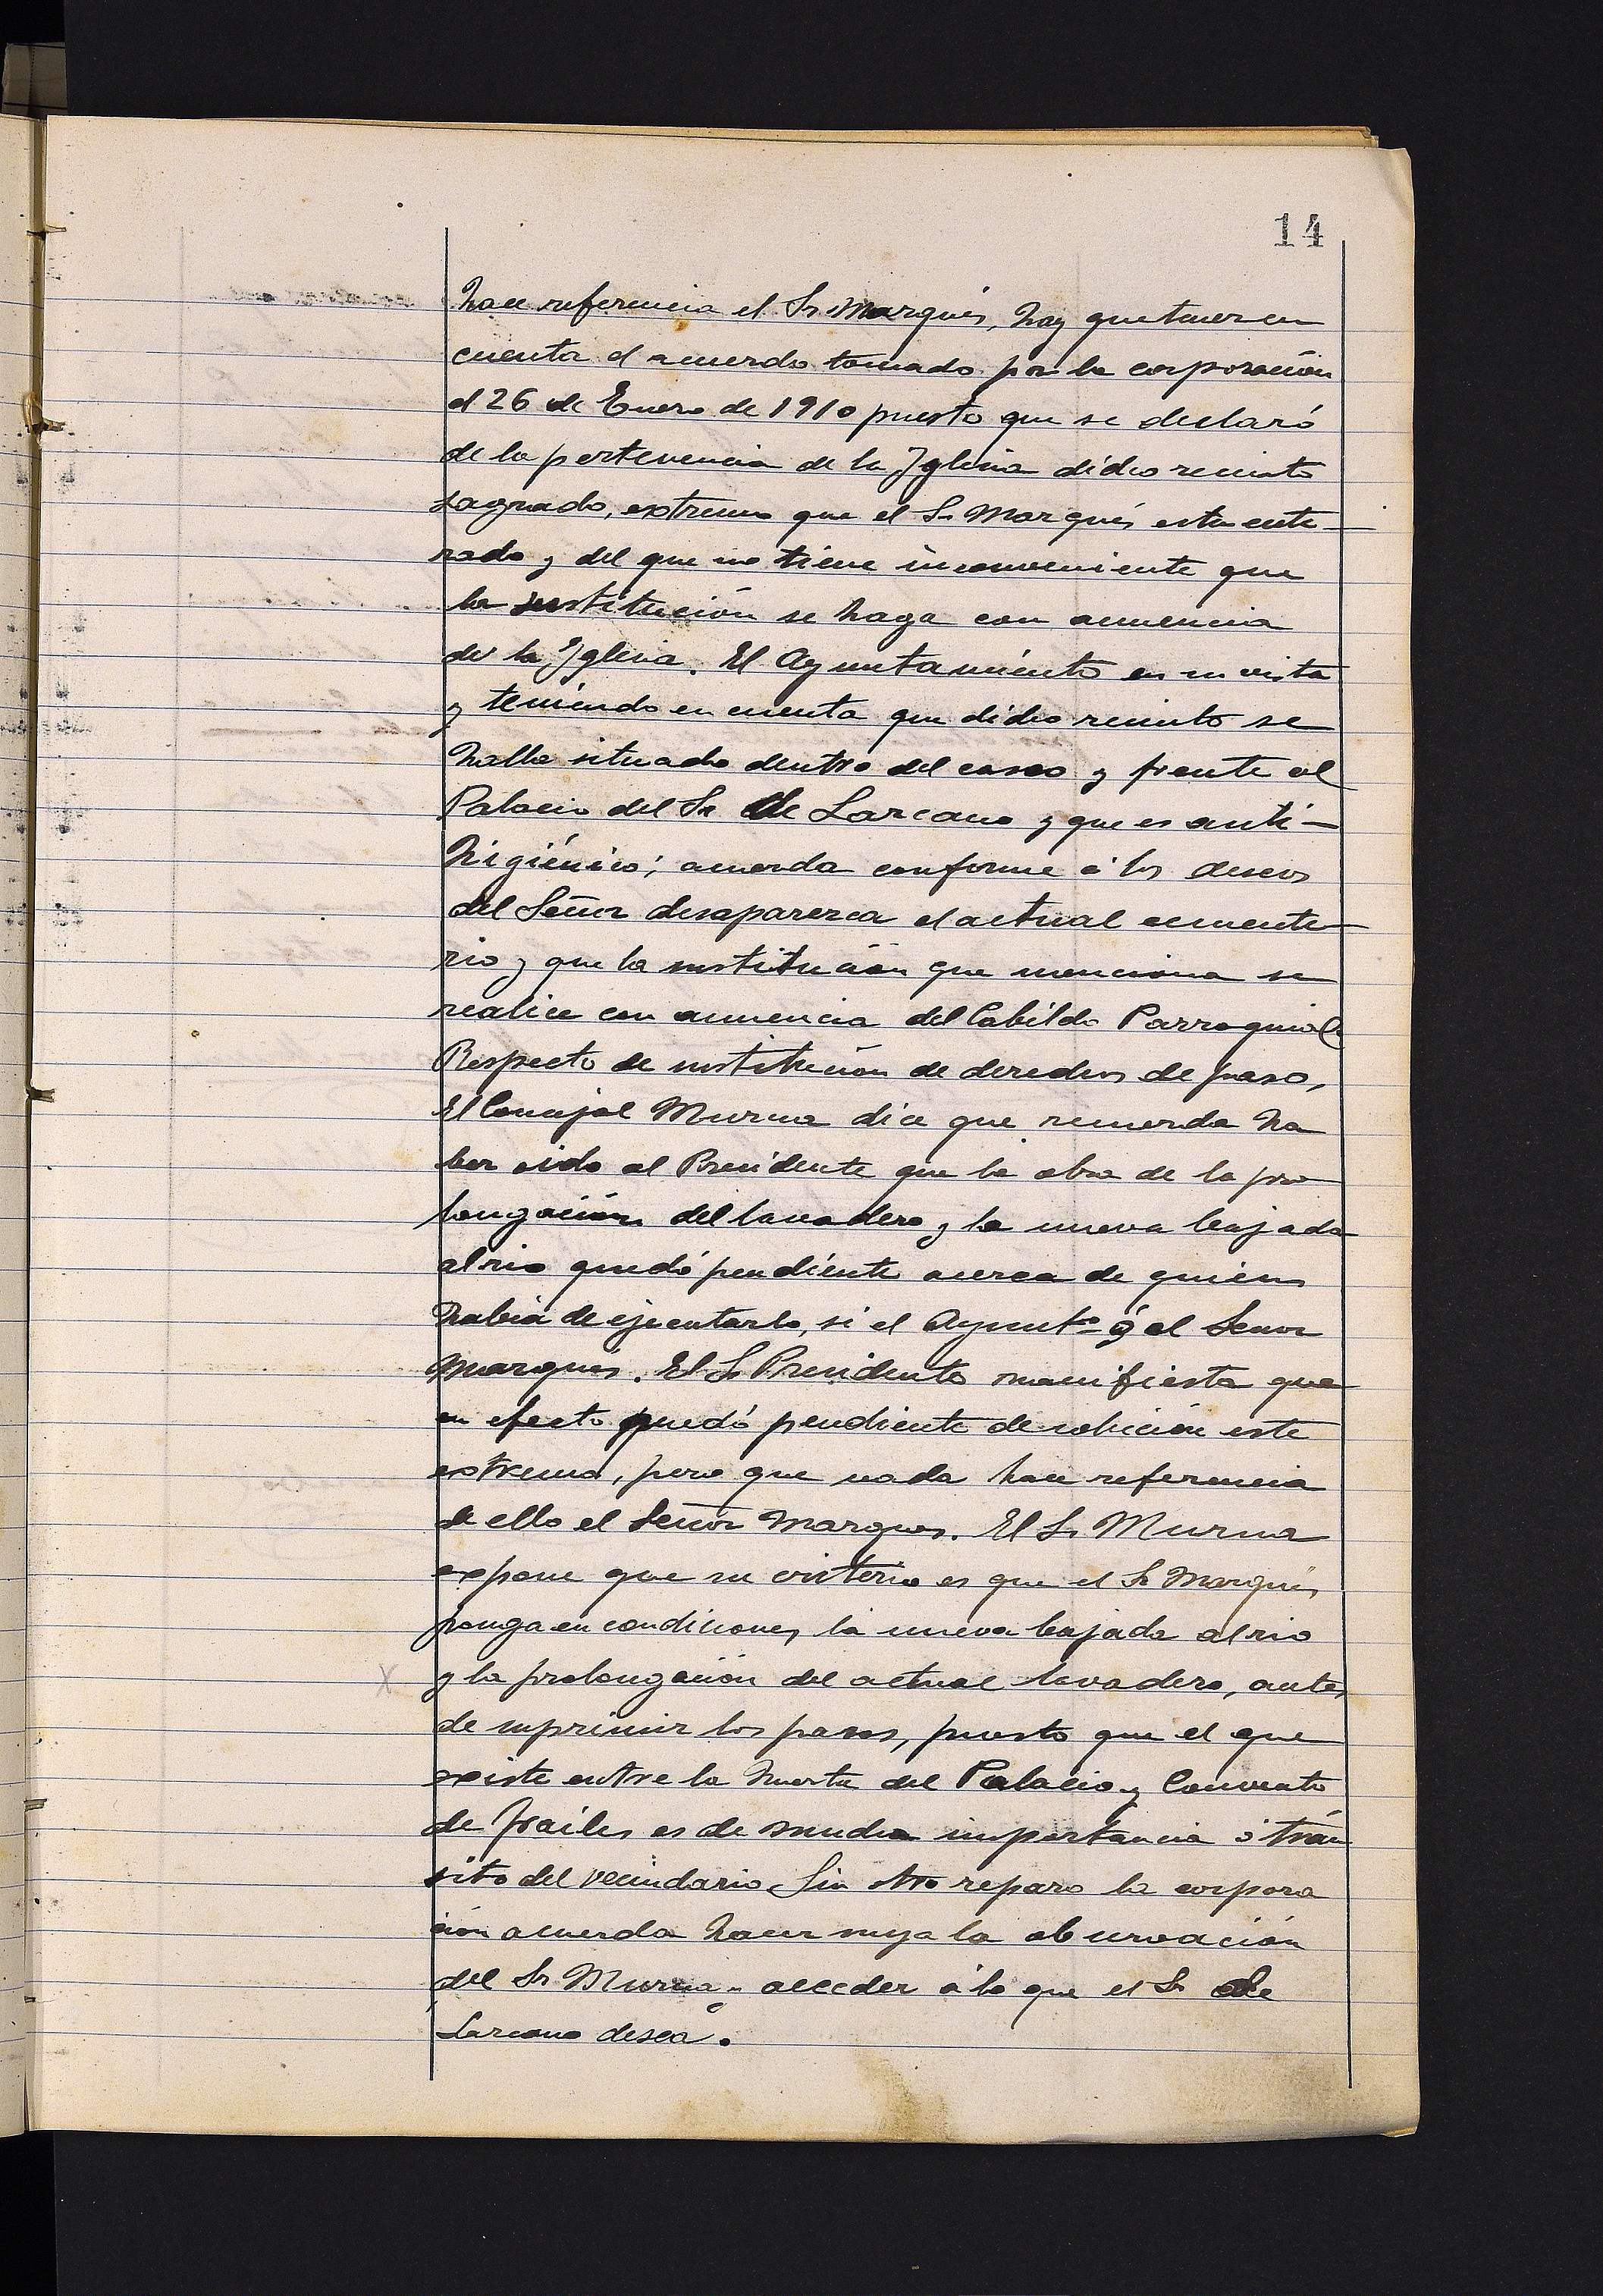 14
hace referencia el Sr Marqués, hay que tener en
cuenta el acuerdo tomado por la corporación
el 26 de Enero de 1910 puesto que se declaró
de la pertenencia de la Iglesia dicho recinto
sagrado, extremo que el Sr Marqués esta ente-
rado y del que no tiene inconveniente que
la sustitución se haga con anuencia
de la Iglesia. El Ayuntamiento en su vista
y teniendo en cuenta que dicho recinto se
halla situado dentro del casco y frente al
Palacio del Sr de Lazcano y que es anti-
higiénico; acuerda conforme á los deseos
del Señor desaparezca el actual cemente-
rio y que la sustitución que menciona se
realice con anuencia del Cabildo Parroquial
Respecto de sustitución de derechos de paso,
El Concejal Murua dice que recuerda ha
ber oido al Presidente que la obra de la pro
longación del lavadero y la nueva bajada
al rio quedó pendiente acerca de quien
habia de ejecutarlo, si el Ayuntº ó el Señor
Marques. El Sr Presidente manifiesta que
en efecto quedó pendiente de solución este
extremo, pero que nada hace referencia
de ello el Señor Marques. El Sr Murua
expone que su criterio es que el Sr Marqués
ponga en condiciones la nueva bajada al rio
X y la prolongación del actual lavadero, antes
de suprimir los pasos, puesto que el que
existe entre la huerta del Palacio y Convento
de frailes es de mucha importancia ó trán
sito del vecindario. Sin otro reparo la corpora
ción acuerda hacer suya la observación
del Sr Murua y acceder á lo que el Sr de
Lazcano desea.